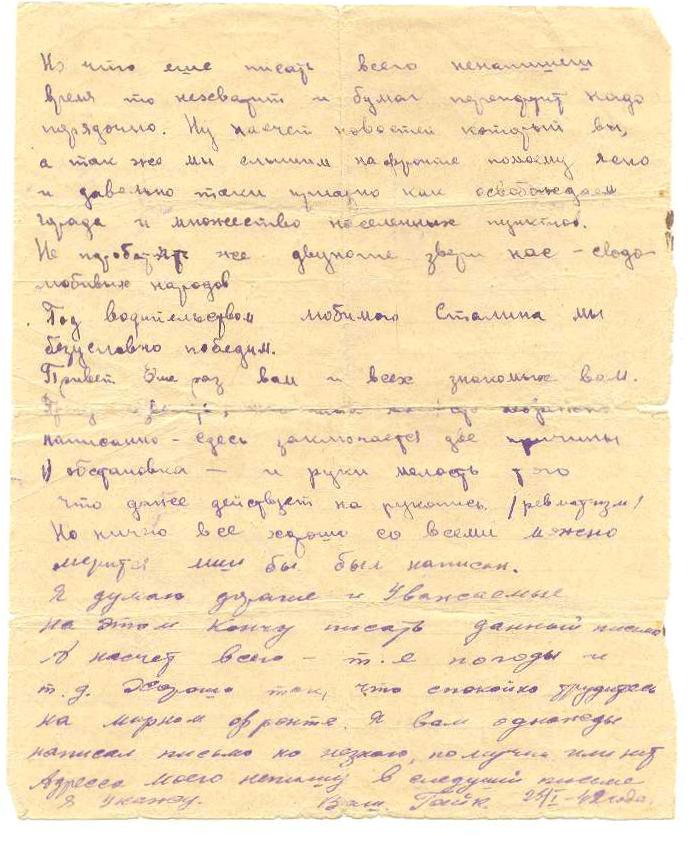 Но что еще писать всего ненапишеш
время то нехватит и бумаг перепдует надо
порядочно. Ну насчет новостей который вы,
а так же мы слышим на фронте помоему ясно
и давольно таки приятно как освобождаем
города и множество населенных пунктов.
Не же двуногие звери нас - свобо-
любивых народов
Под водительством любимого Сталина мы
безусловно победим.
Привет Еще раз вам и всех знакомых вам.
написанно - сдесь заключается две причины
1) обстановка — и руки малость того
что даже действует на рукопись. /ревматизм/
Но ничего все хорошо со всеми можно
мерится лиш бы был написан.
Я думаю дорагие и Уважаемые
на этом кончу писать данный письмо
А насчет всего - т.е погоды и
т.д. Хорошо так, что спокойно трудитесь
на мирном фронте. Я вам однажды
написал письмо но незнаю, получили или нет
Адресса моего непишу в следущий письме
Я Укажу. Ваш Гайк. 25/I-42 года.